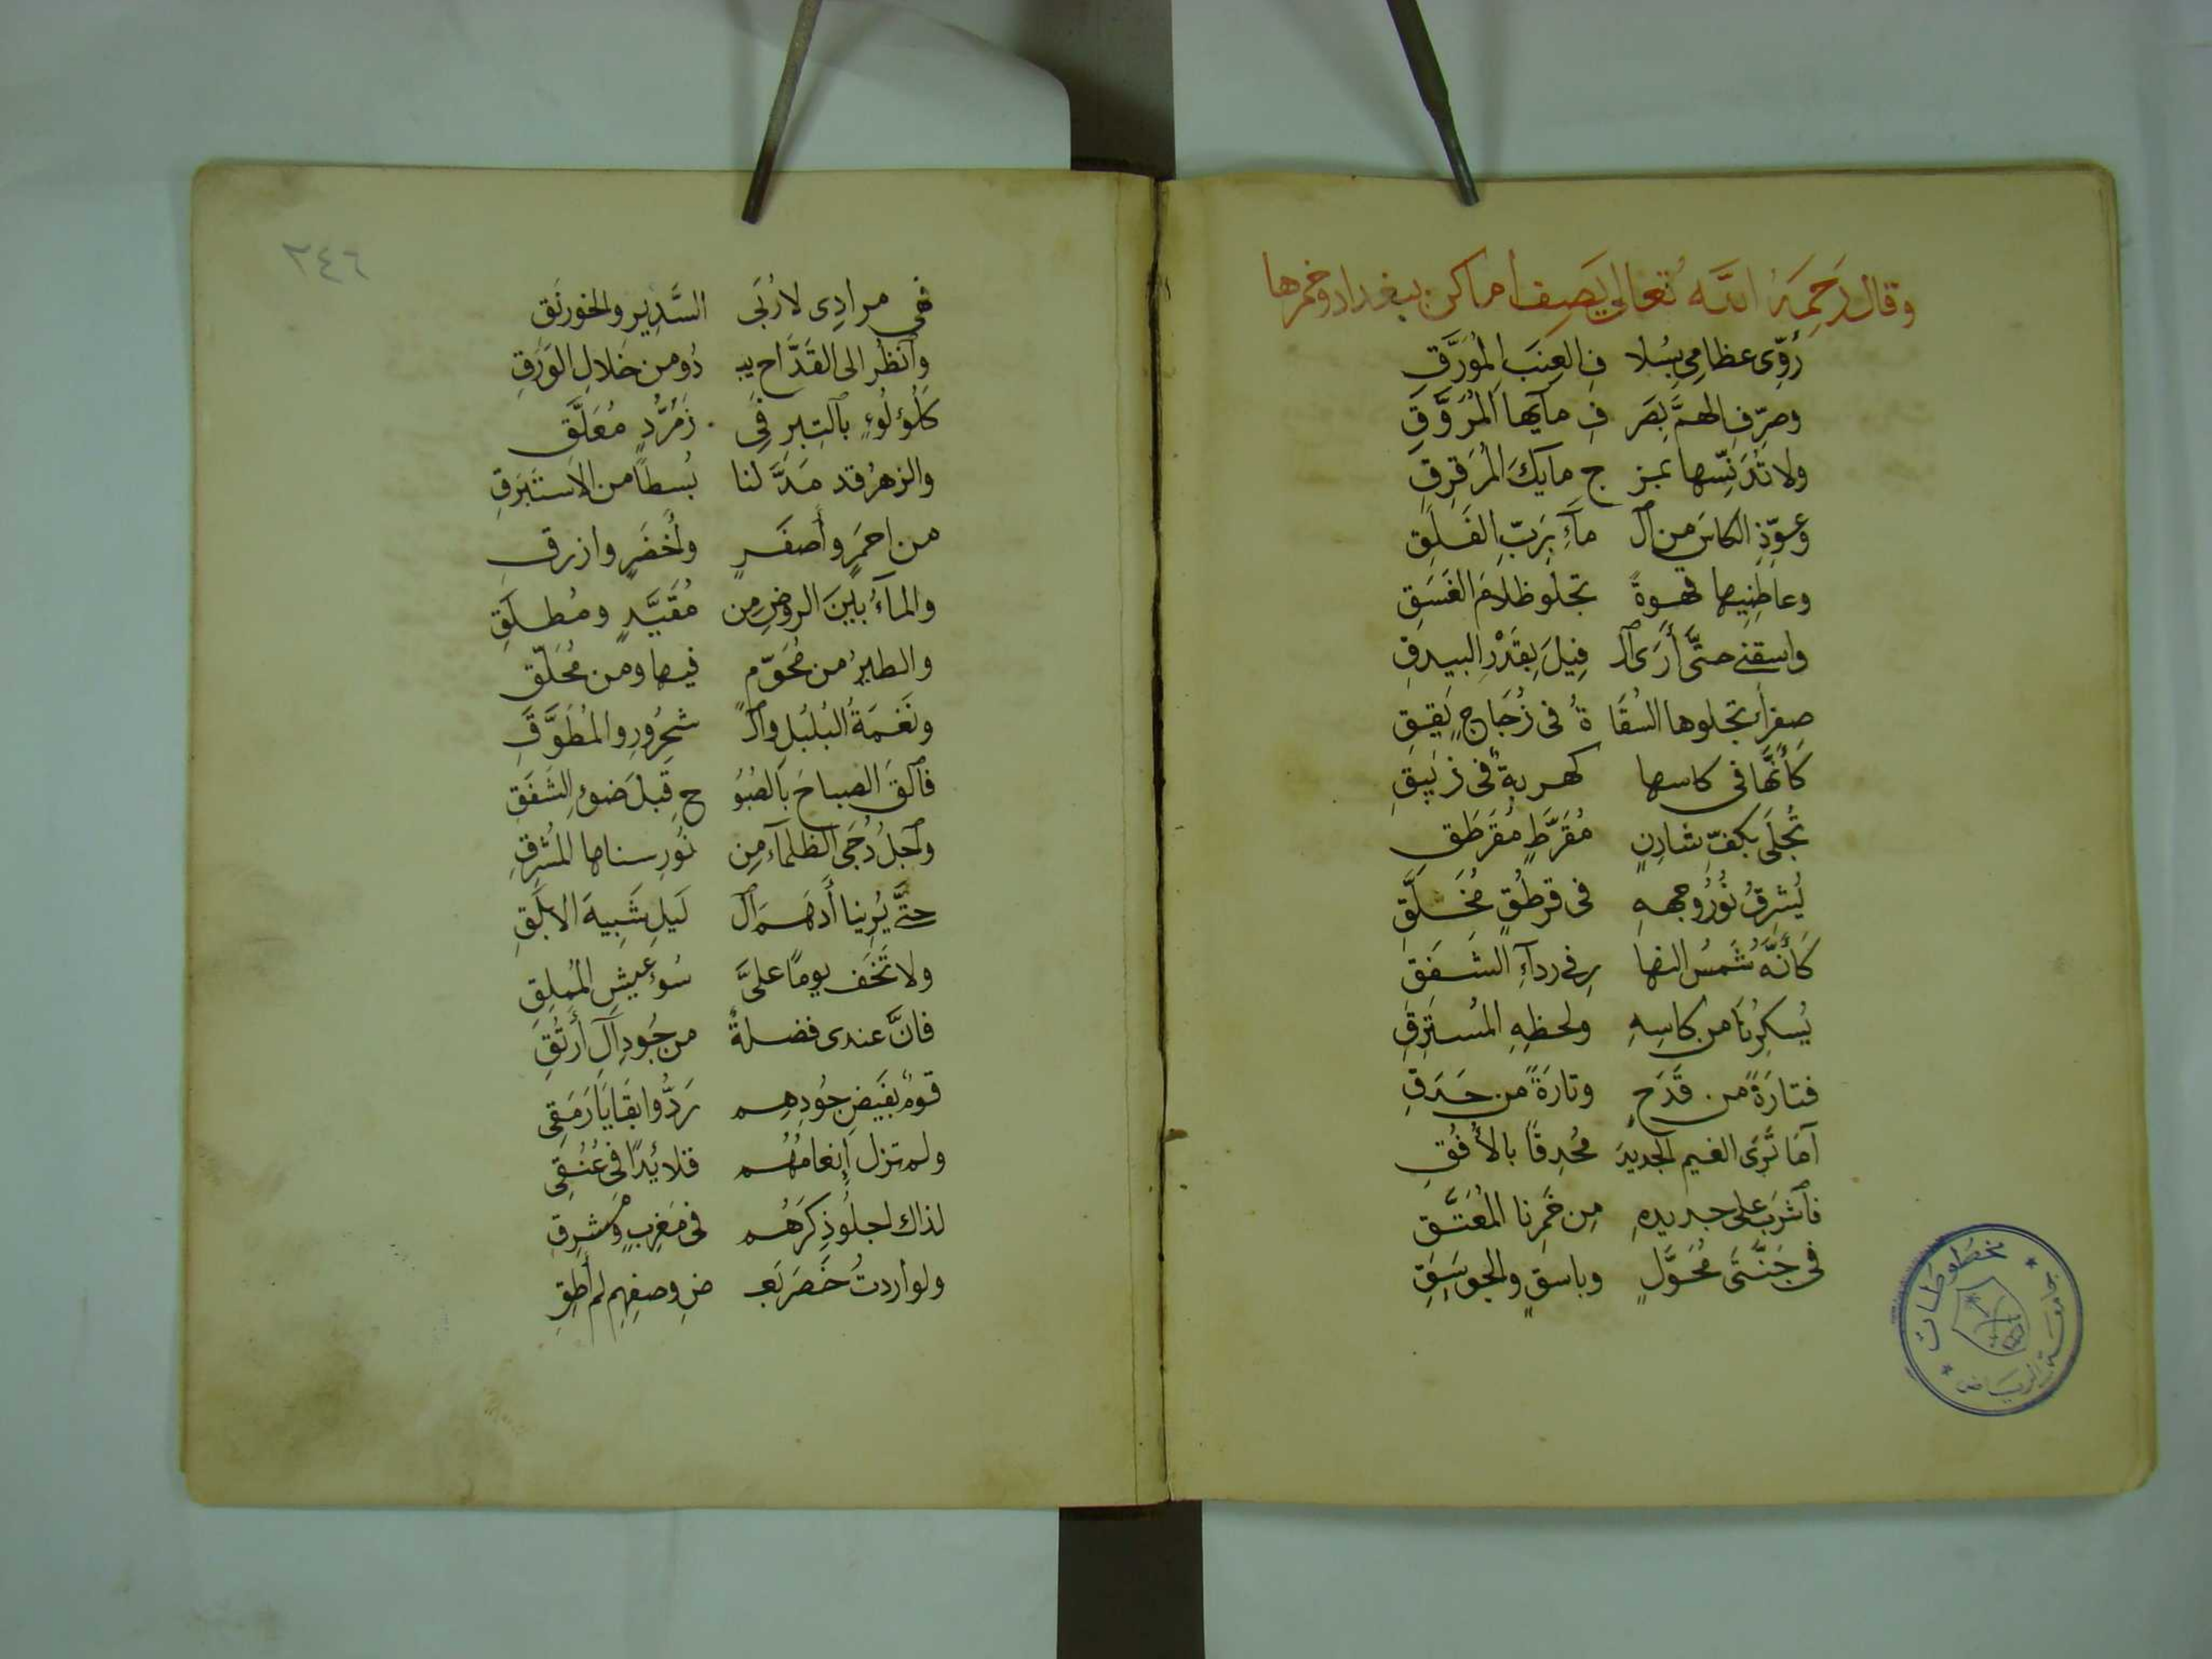 وقال رَحِمَهُ اللَّه تعالى يَصِفُ اماكن ببغداد وخمرها
رُوِّى عظامِى بِسُلا فِ العِنَبِ المُوَرَّقِ
وصرِّفِ الهمَّ بِصَر فِ مآيها المُرَوَّقِ
ولا تُدَنِّسها بمز ج مايكَ المُرَقرِقِ
وعوِّذِ الكاسَ من ٱل مآءِ بِرَبِّ الفَلَقِ
وعاطِنِيها قهوةً تجلو ظلامَ الغَسَقِ
واسقنى حتَّى أَرَى ٱل فِيلَ بِقَدْرِ البيدقِ
صفرآء تجلوها السُقَا ةُ فى زُجَاجٍ يَقِقِ
كَأَنَّها فى كاسها كهربةٌ فى زيبقِ
تُجلَى بكفِّ شادِنٍ مُقَرَّطٍ مُقَرطَقِ
يُشرِقُ نُورُ وجههِ فى قرطُقٍ مُخَلَّقِ
كَأَنَّه شَمسُ النها رِ فى ردآءِ الشفَقِ
يُسكِرُنا من كاسِهِ ولحظِهِ المُسترَقِ
فتارَةً من قَدَحٍ وتارَةً من حَدَقِ
آما تَرَى الغيم الجديدَ مُحدِقًا بالأُفُقِ
فٱشرَب على جديدِهِ مِن خَمرِنا المُعَتَّقِ
فى جَنَّتَى مُحَوَّلٍ وباسقٍ والجوسَقِ
٢٤٦
فهى مرادِى لا رُبَى السَّدِيرِ والخورنَقِ
وٱنظُر الى القَدَّاحِ يبـ دُو من خَلالِ الوَرَقِ
كَلُؤلُوءٍ بٱلتِبرِ فى زَمُرُّدٍ مُعَلَّقِ
والزهرُ قد مَدَّ لنا بُسطاً من الاستَبرَقِ
من احمَرٍ وأَصفَرٍ وأَخضَرٍ وازرقِ
والمآءُ بينَ الروضِ مِن مُقَيَّدٍ ومُطلَقِ
والطيرُ من مُحَوّمٍ فيها ومن مُحَلّقِ
ونَغمَةُ البُلبُلِ وٱل شحرُورِ والمُطَوَّقِ
فٱلقَ الصباحَ بالصَبُو حِ قبلَ ضوءِ الشَفَقِ
وٱجلُ دُجَى الظلمآءِ مِن نُورِ سناها المُشرِقِ
حتَّى يُرِينا أَدهَمَ ٱل لَيلِ شَبِيهَ الابلَقِ
ولا تَخَف يومًا علىَّ سُوءَ عيشِ المُملِقِ
فانَّ عندى فضلةً من جُودِ آلِ أُرتُقِ
قومٌ بفَيضِ جُودِهِم رَدُّوا بقَايَا رَمَقِى
ولم تزل إنعامُهُم قلائِدًا فى عُنُقِى
لذاك اجلُو ذِكرَهُم فى مَغرِبٍ ومَشرِقِ
ولو أردتُ حَصرَ بَعـ ضِ وصفِهِم لم أُطِقِ
مخطوطات
جامعة الرياض